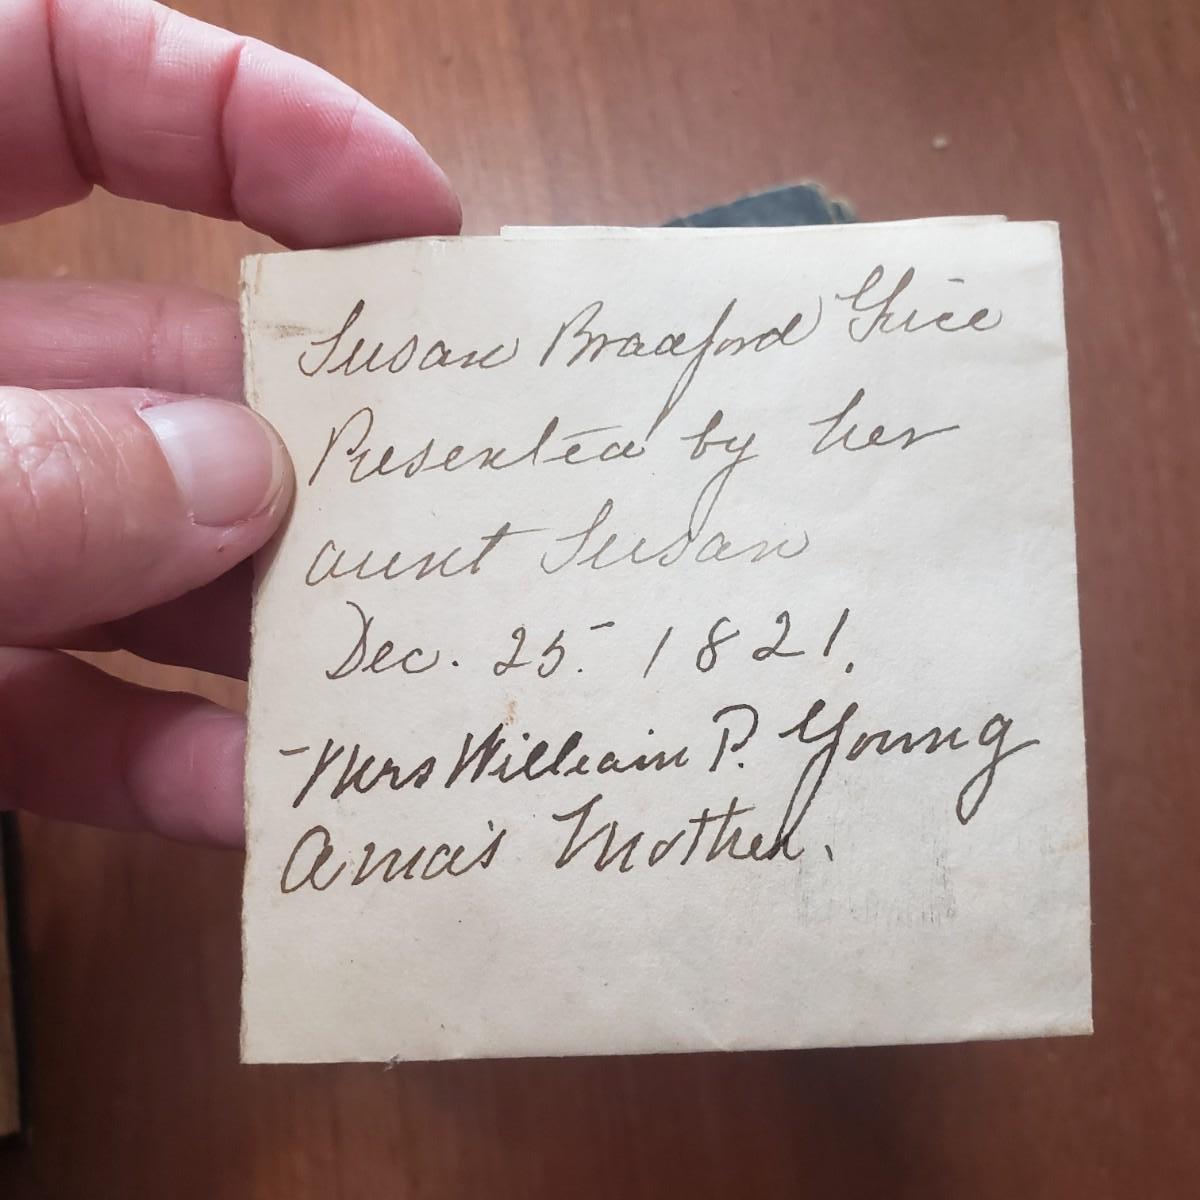 Susan Bradford Grice
Presented by her
aunt Susan
Dec. 25. 1821.
Mrs William P. Young
Ama's Mother.